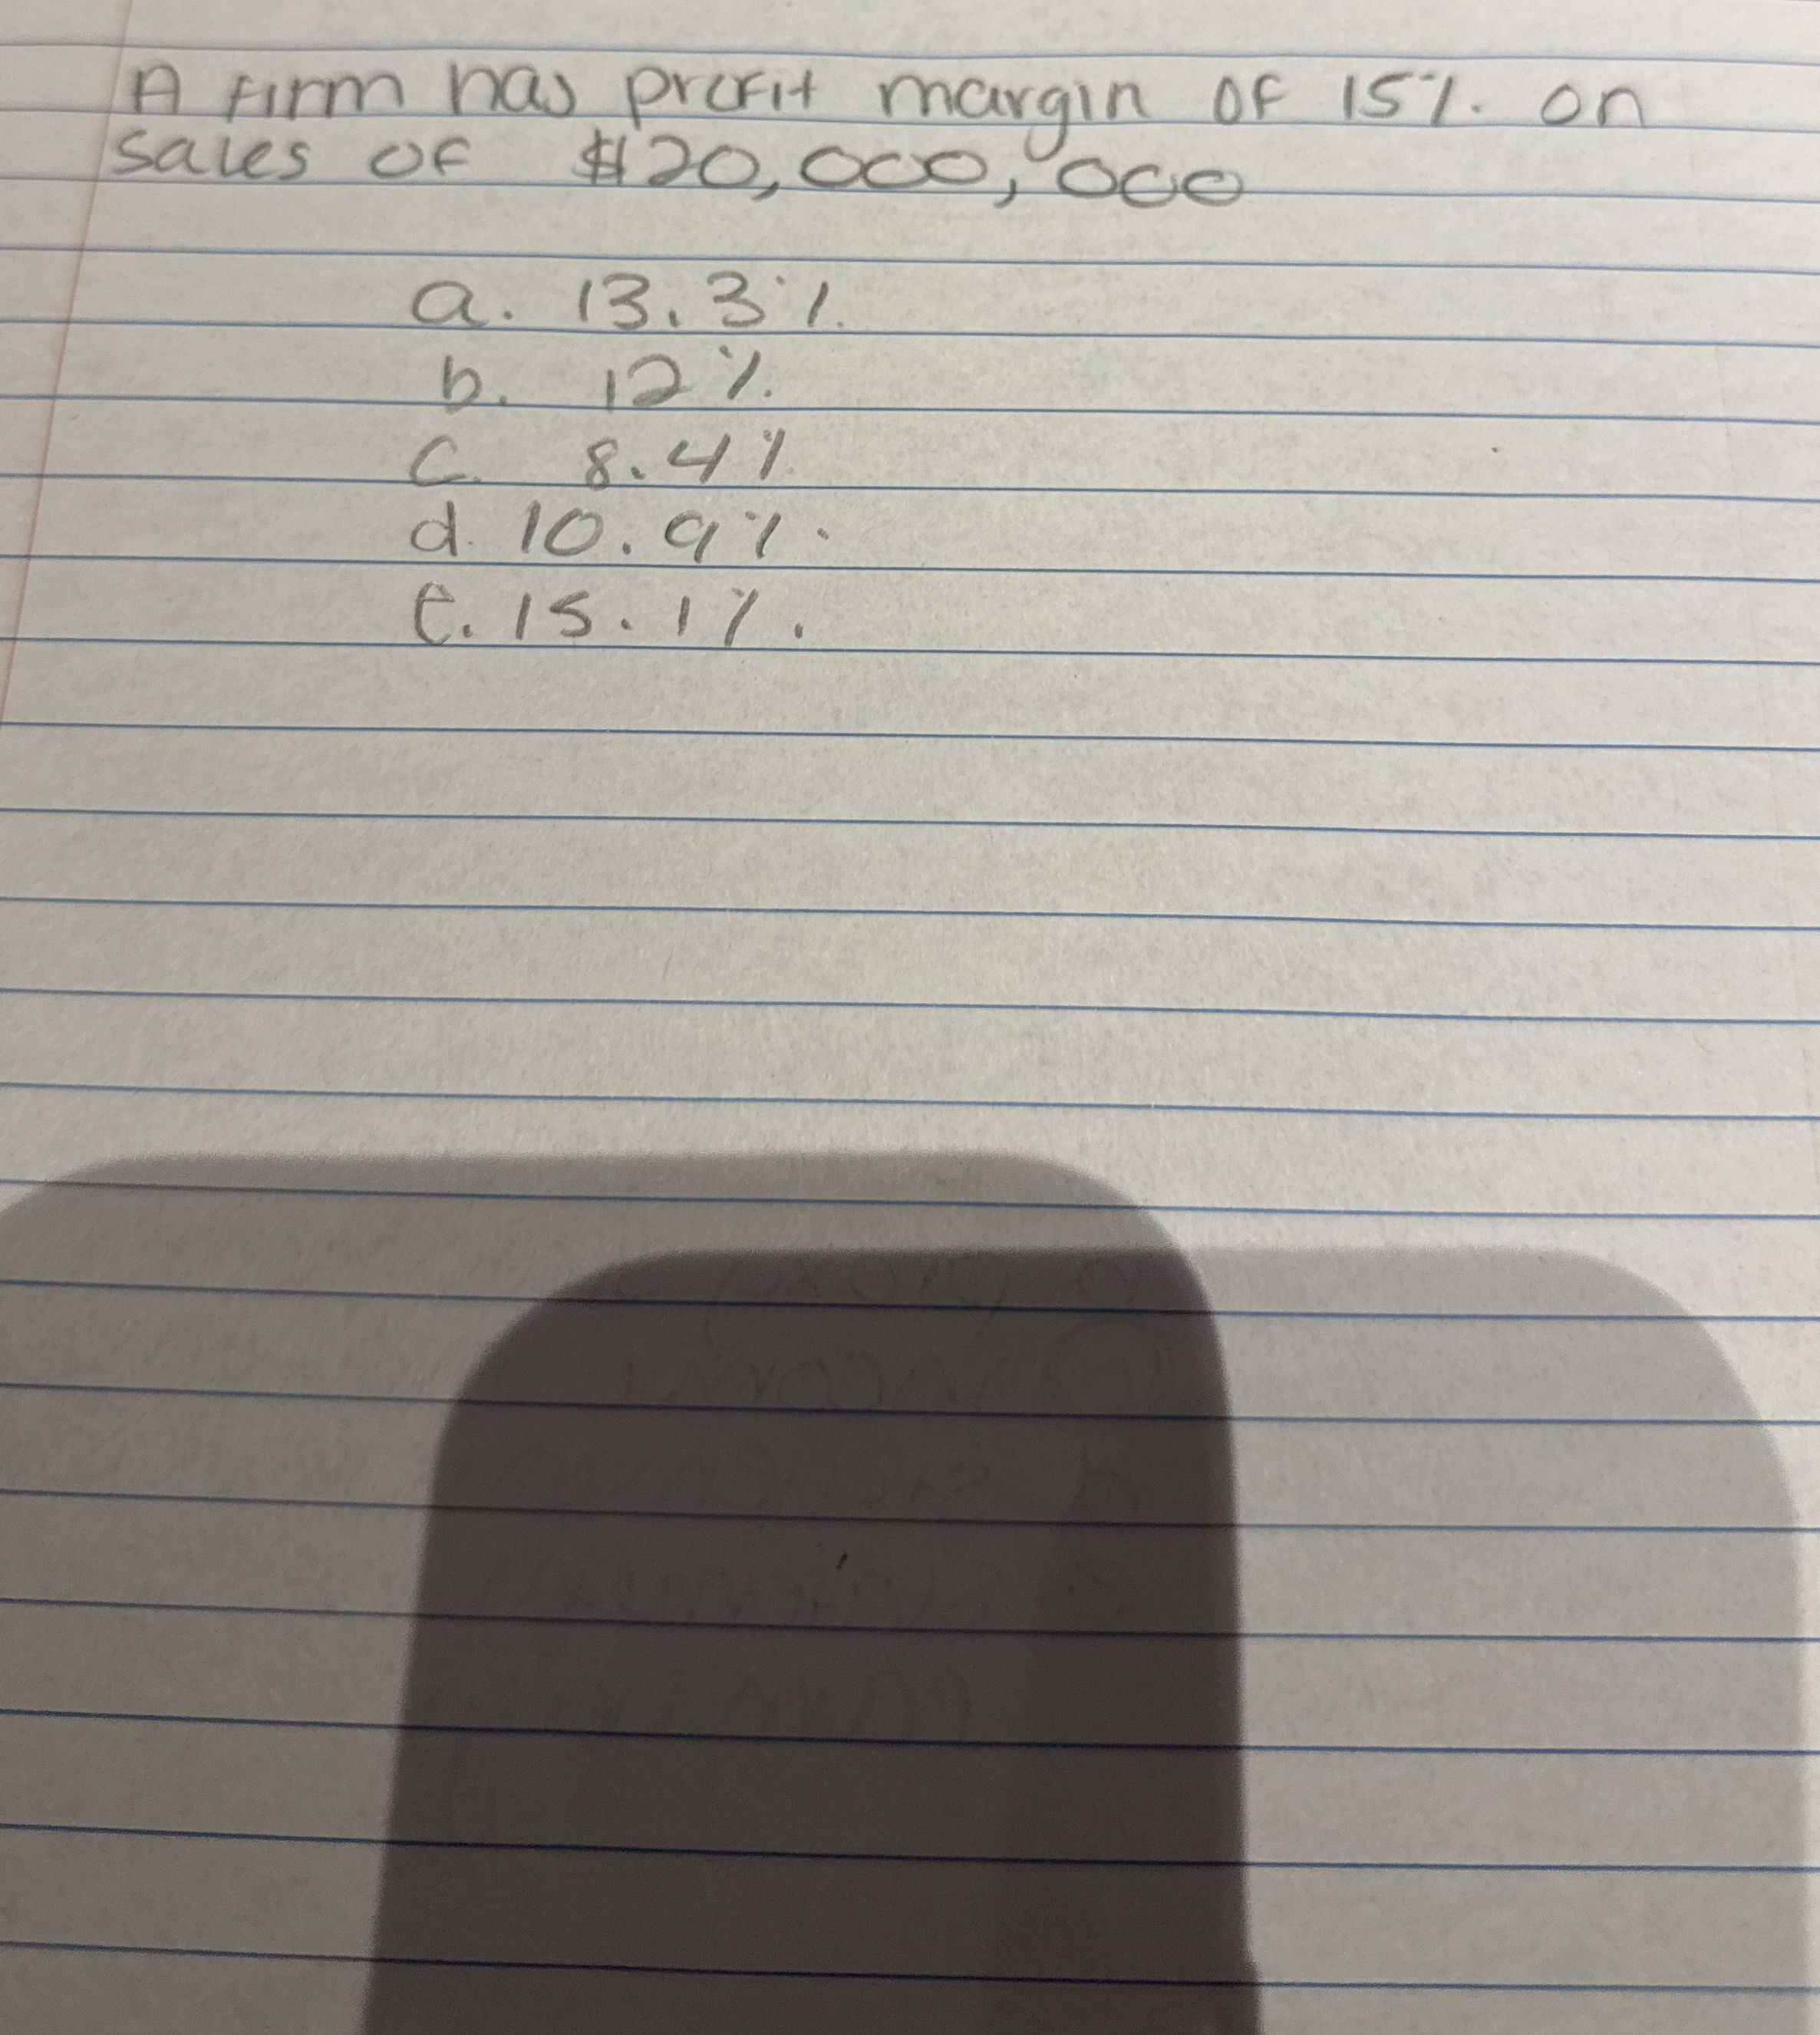 A firm has profit margin of 15% on
sales of $20,000,000
a. 13.3%
b. 12%
c. 8.4%
d. 10.9%
e. 15.1%